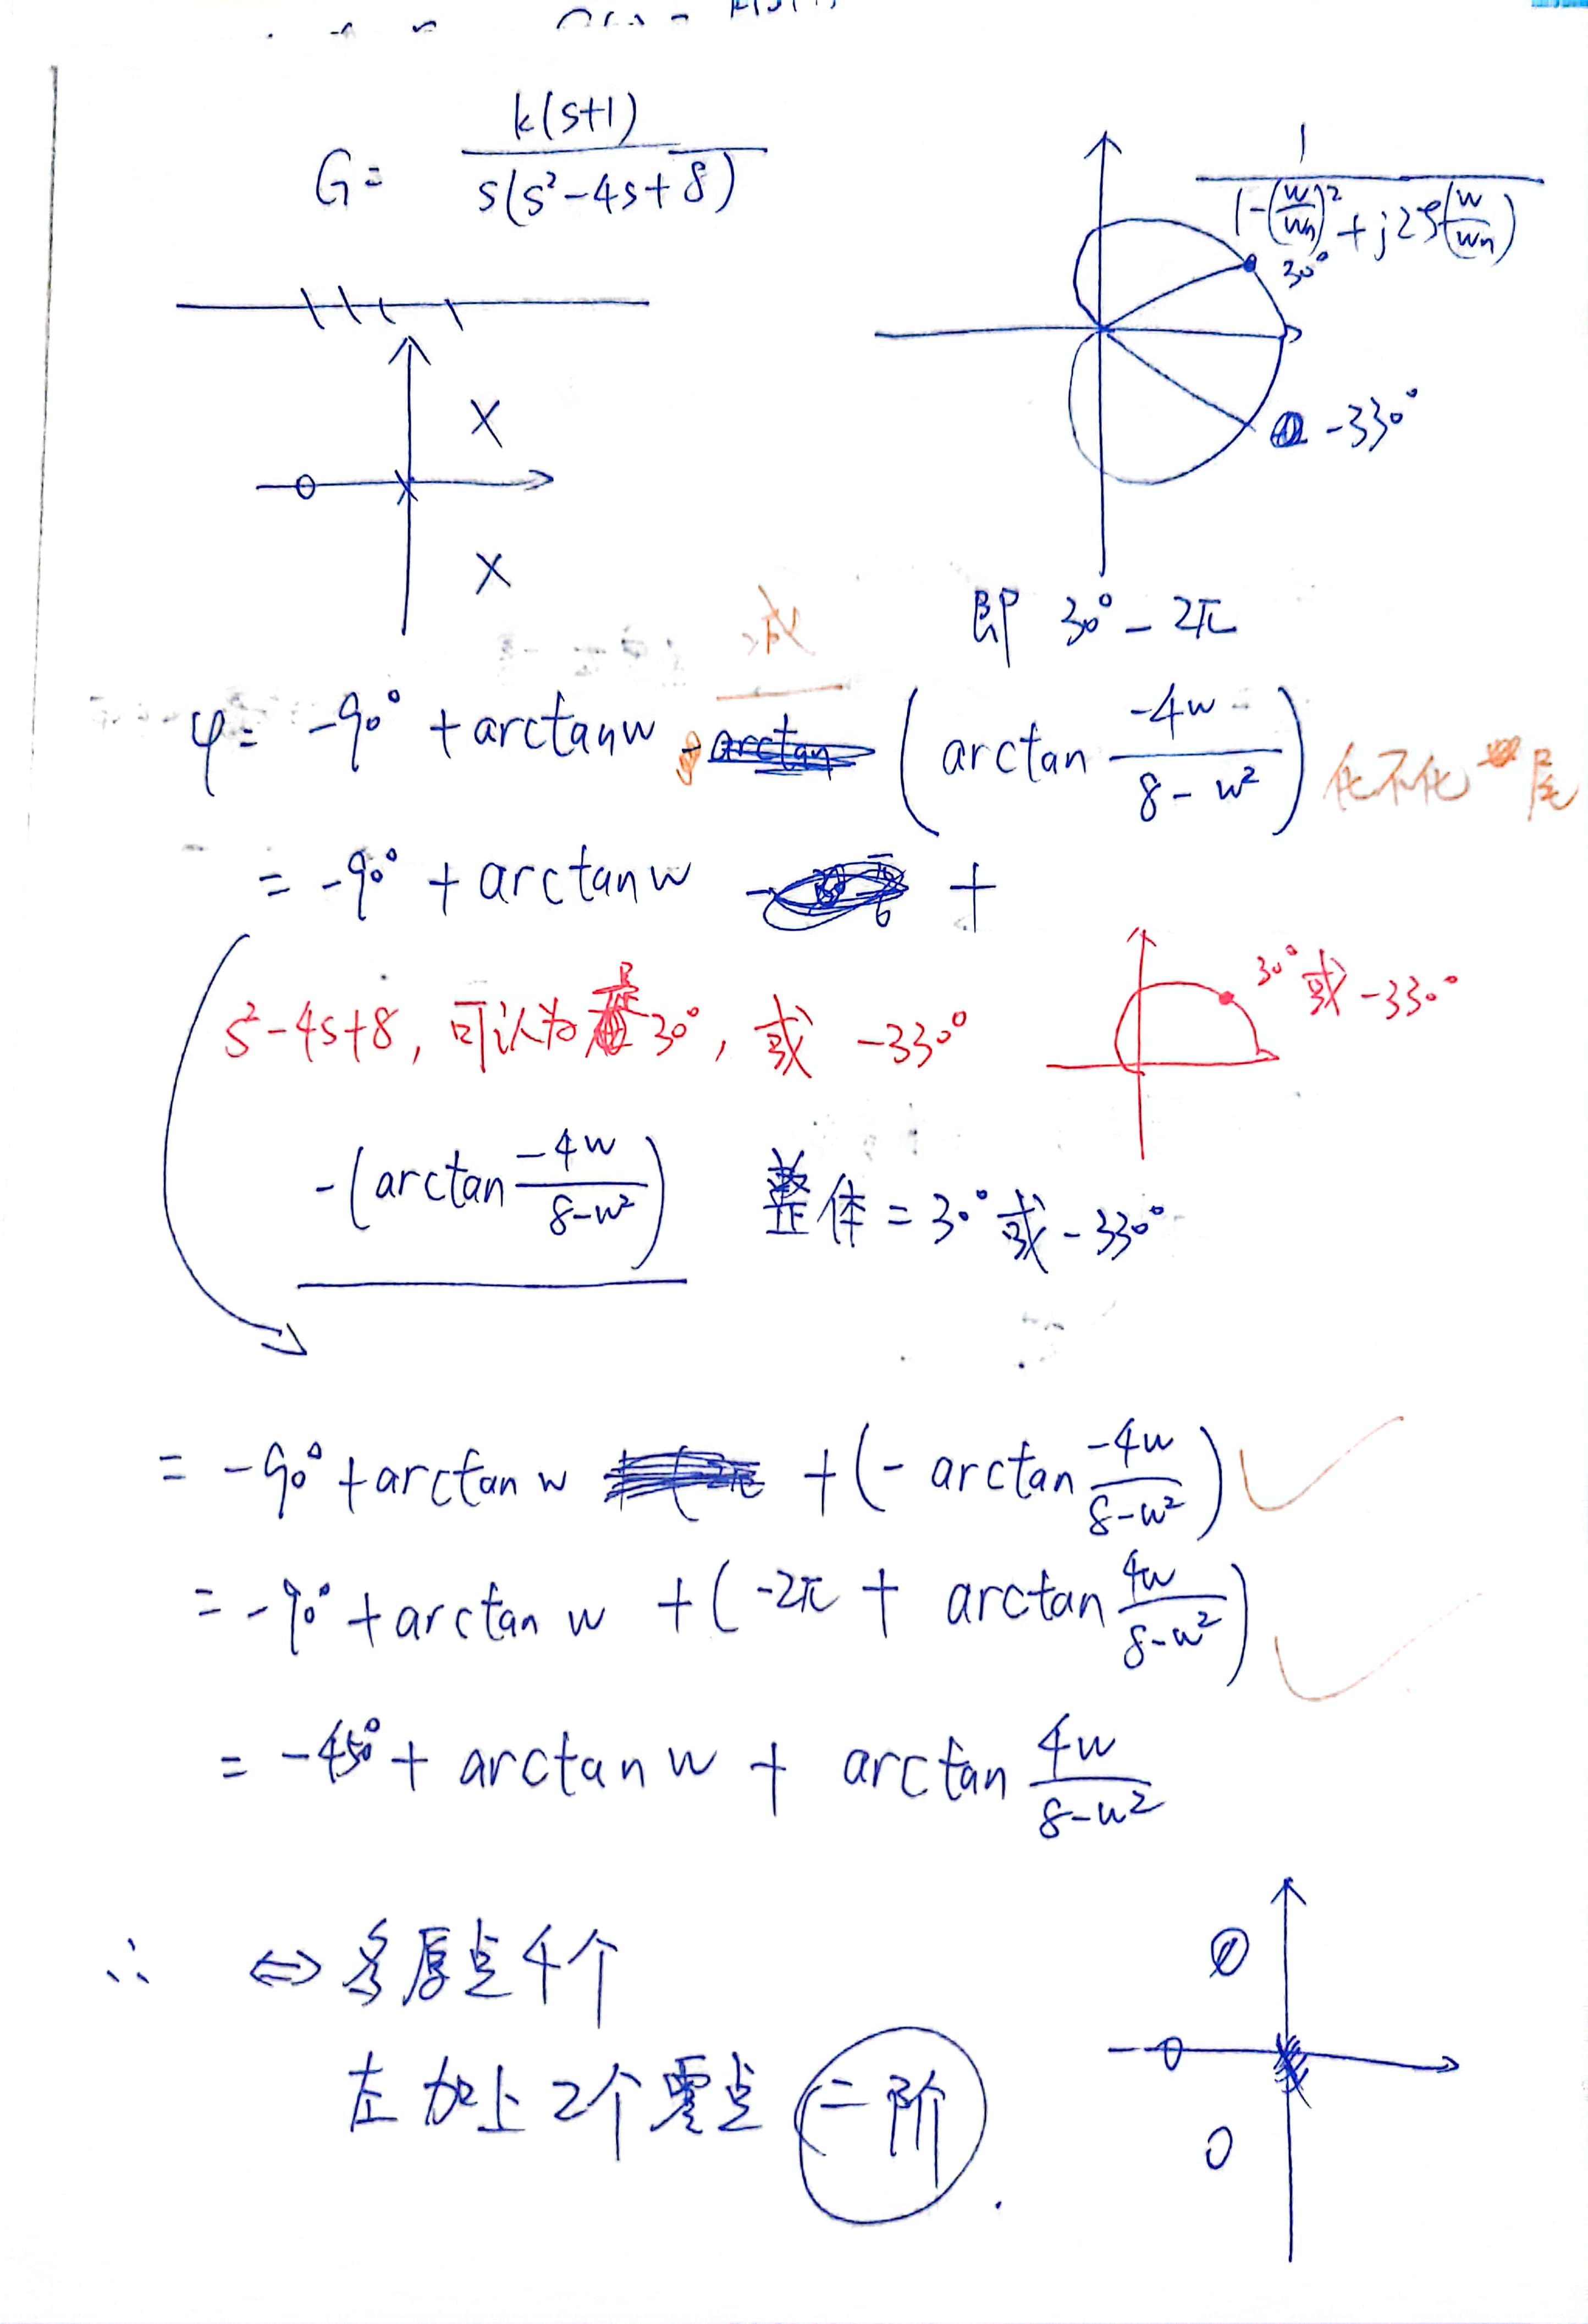 G = k(s+1) / s(s²-4s+8)
1 / 1-(w/wn)²+j2ζ(w/wn)
30°
-330°
即 30°-2π
或
φ= -90° + arctanw - (arctan -4w/8-w²) 化不化
= -90° + arctanw +
30°或-330°
s²-4s+8, 可认为 30°, 或 -330°
-(arctan -4w/8-w²) 整体=30°或-330°
= -90°+arctan w +(- arctan -4w/8-w²)
= -90°+arctan w +(-2π + arctan 4w/8-w²)
= -450°+ arctan w + arctan 4w/8-w²
∴ ⇔ 多原点4个
左加上2个零点 二阶